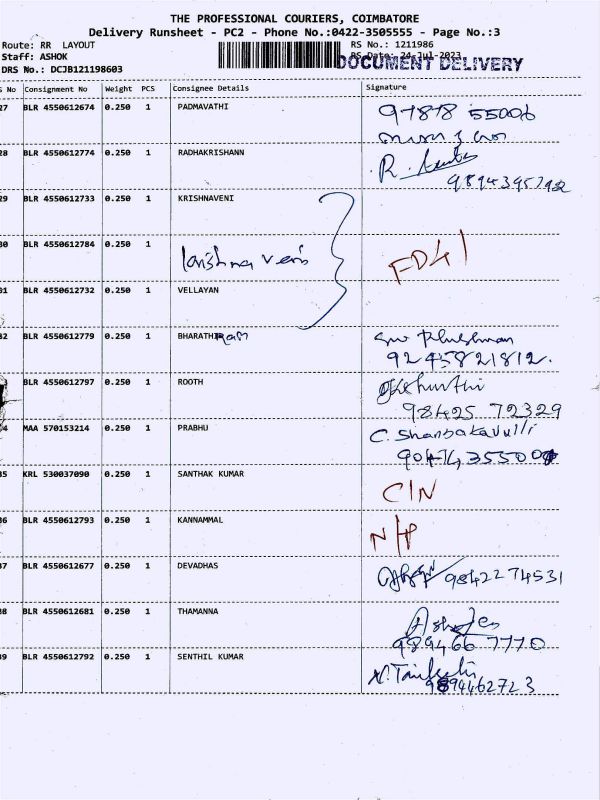 THE PROFESSIONAL COURIERS, COIMBATORE
Delivery Runsheet - PC2 - Phone No.:0422-3505555 - Page No.:3
Route: RR LAYOUT
RS No.: 1211986
Staff: ASHOK
RS Date: 24-Jul-2023
DOCUMENT DELIVERY
DRS No.: DCJB121198603
S No Consignment No Weight PCS Consignee Details Signature
27 BLR 4550612674 0.250 1 PADMAVATHI 97878 55006
28 BLR 4550612774 0.250 1 RADHAKRISHANN R.
9894395792
29 BLR 4550612733 0.250 1 KRISHNAVENI
30 BLR 4550612784 0.250 1 krishna veni FD41
31 BLR 4550612732 0.250 1 VELLAYAN
32 BLR 4550612779 0.250 1 BHARATHI
9245821812.
BLR 4550612797 0.250 1 ROOTH
98425 72329
4 MAA 570153214 0.250 1 PRABHU C. Shanbakavalli
35 KRL 530037090 0.250 1 SANTHAK KUMAR C/N
36 BLR 4550612793 0.250 1 KANNAMMAL N/P
37 BLR 4550612677 0.250 1 DEVADHAS 9842274531
38 BLR 4550612681 0.250 1 THAMANNA
989466 7770
39 BLR 4550612792 0.250 1 SENTHIL KUMAR
989462723